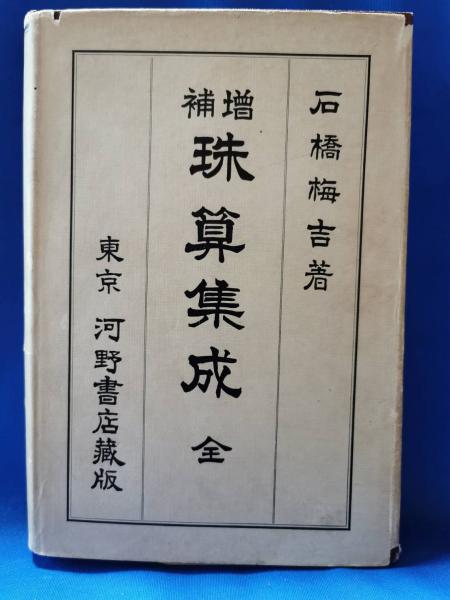 石橋梅吉著
増補
珠算集成 全
東京 河野書店藏版